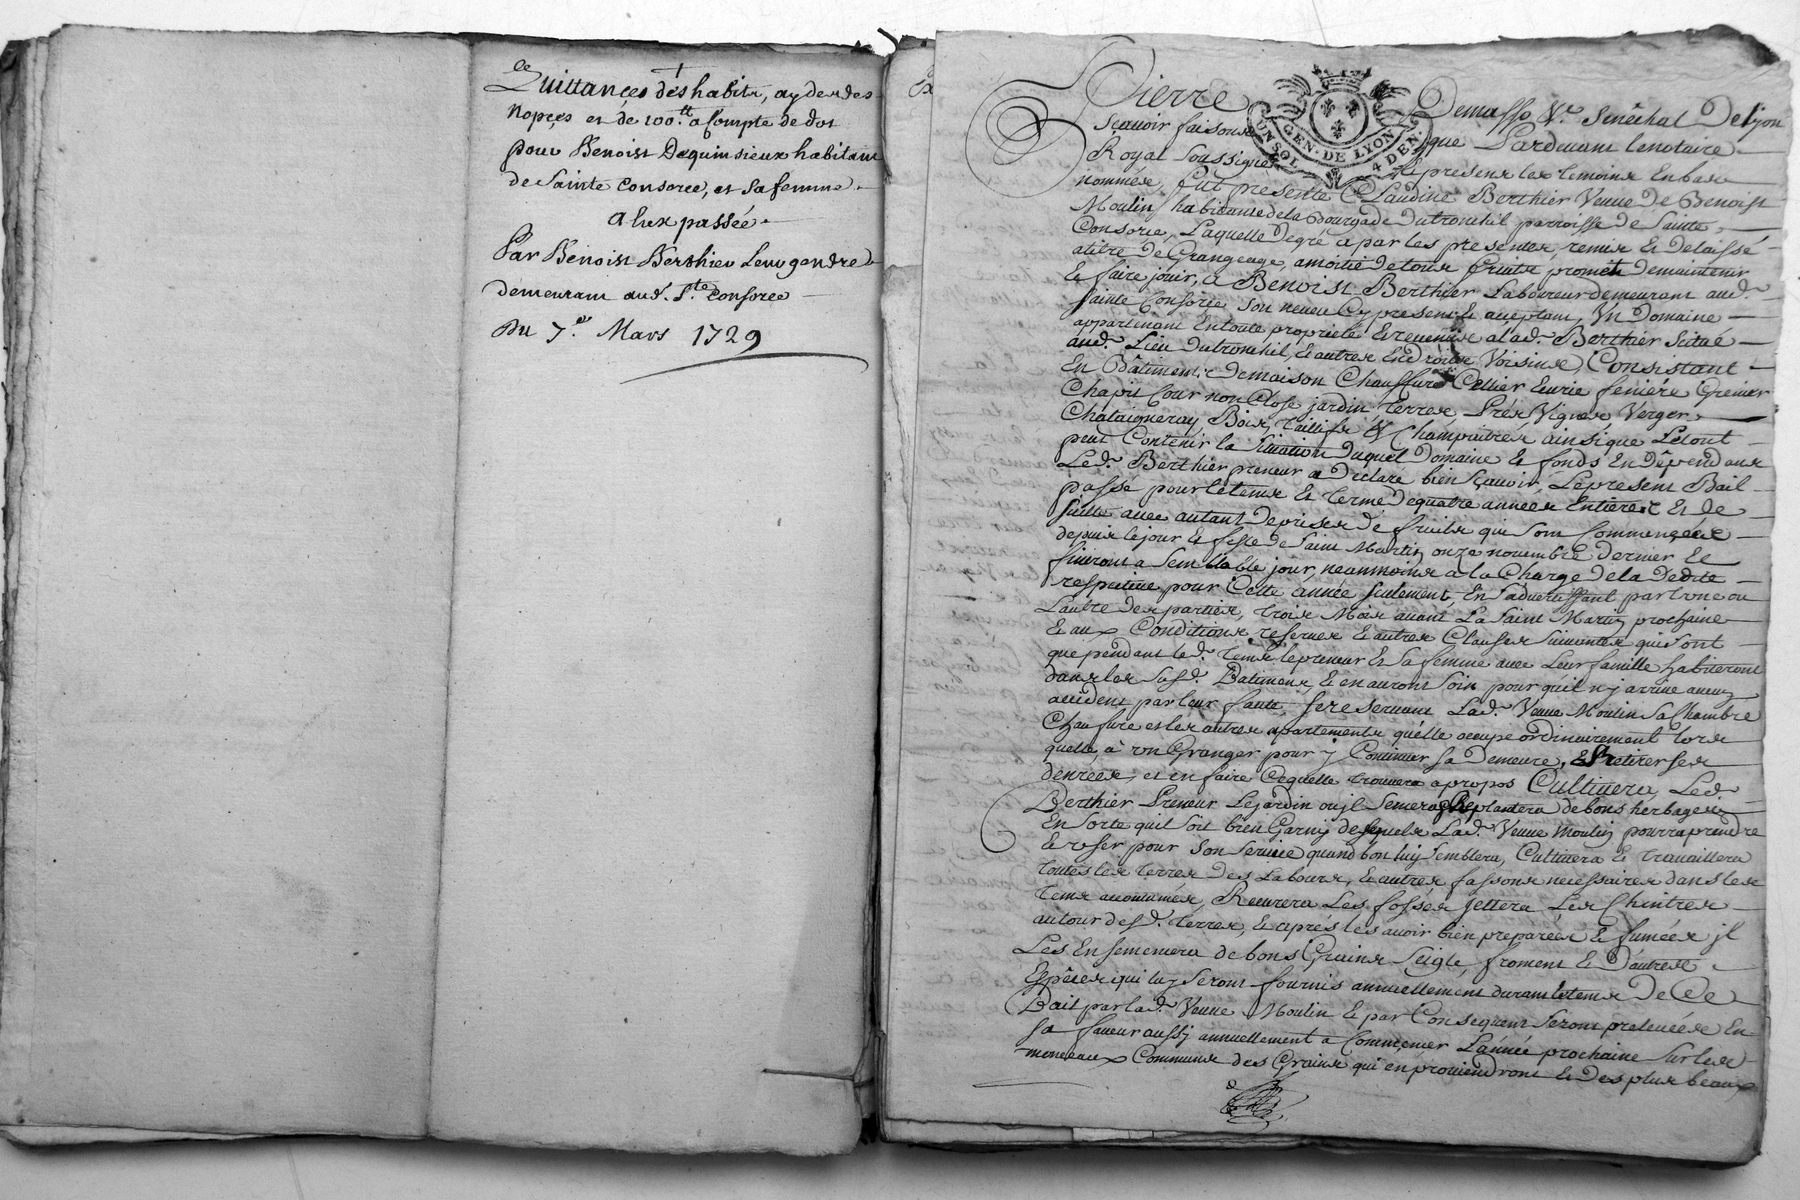 Quittances des habits, ayde des
nopces et de 100.tt a compte de dot
pour Benoist Dequinsieux habitant
de Sainte Consorce, et sa femme
a lux passée
Par Benoist Berthier leur gendre
demeurant aud. S.te Consorce
Du 7.e Mars 1729
Pierre Demasso Sr. Senéchal De lyon
GEN. DE LYON
4 DEN.
Sçavoir faisons que Pardevant le notaire
Royal Soussigné & presens les temoins En bas
nommés, fut presente Claudine Berthier Veuve de Benoist
Moulin habitante de la Bourgade du tronchil parroisse de Sainte
Consorce, Laquelle de gré a par les presentes, remis & Delaissé
atitre de Grangeage, amoitié de tous fruits promet de maintenir
& faire jouir, a Benoist Berthier Laboureur demeurant aud.
Sainte Consorce son neveu Cy present & acceptant, Un Domaine
appartenant En toute proprieté & revenus a lad. Berthier Scitué
aud. Lieu du tronchil, & autres Endroits Voisins, Consistant
En Bâtiments de maison Chauffure Cellier Ecurie feniére Grenier
Chapit Cour non Close jardin terres Prés Vignes Verger
Chataigneray Bois, taillifs & Champaitres ainsi que Letout
peut Contenir la Situation duquel Domaine & fonds En Dépendans
Led. Berthier preneur a Declaré bien Sçavoir, Le present Bail
passé pour le tems & terme de quatre années Entieres & de
suitte avec autant de prises de fruits qui sont Commencées
depuis le jour & feste de Saint Martin onze novembre dernier &
finiront a Semblable jour, neanmoins a la Charge de la Dedite
respective pour Cette année seulement, En s'advertissant par l'une ou
Lautre des parties, trois Mois avant La Saint Martin prochaine
& aux Conditions reserves & autres Clauses Suivantes qui sont
que pendant led. tems le preneur & Sa femme avec Leur famille habiteront
dans les Susd. Batimens, & en auront Soin pour qu'il n'y arrive aucun
accident par leur faute, se reservant Lad. Veuve Moulin Sa Chambre
Chaufure et les autres apartements qu'elle occupe ordinairement lors
quelle à un Granger pour y Continuer sa Demeure, & retirer ses
denrées, et en faire Ce quelle trouvera apropos Cultivera, Led.
Berthier Preneur Le jardin ou jl Semera & Replantera de bons herbages
En sorte quil soit bien Garny desquels Lad. Veuve Moulin pourra prendre
& user pour Son Service quand bon luy Semblera, Cultivera & travaillera
toutes les terres des Labours, & autres fassons necessaires dans les
tems accoutumés, Recurera Les fossés jettera Les Chintres
autour desd. terres, & aprés les avoir bien preparées & fumées jl
Les Ensemencera de bons Grains Seigle, froment & Dautres
Espêces qui luy Seront fournis annuellement durant le tems De Ce
Bail par lad. Veuve Moulin & par Consequent Seront prelevées En
sa faveur aussy annuellement a Commencer L'année prochaine Sur les
monceaux Communs des Grains qui en proviendront & Des plus beaux